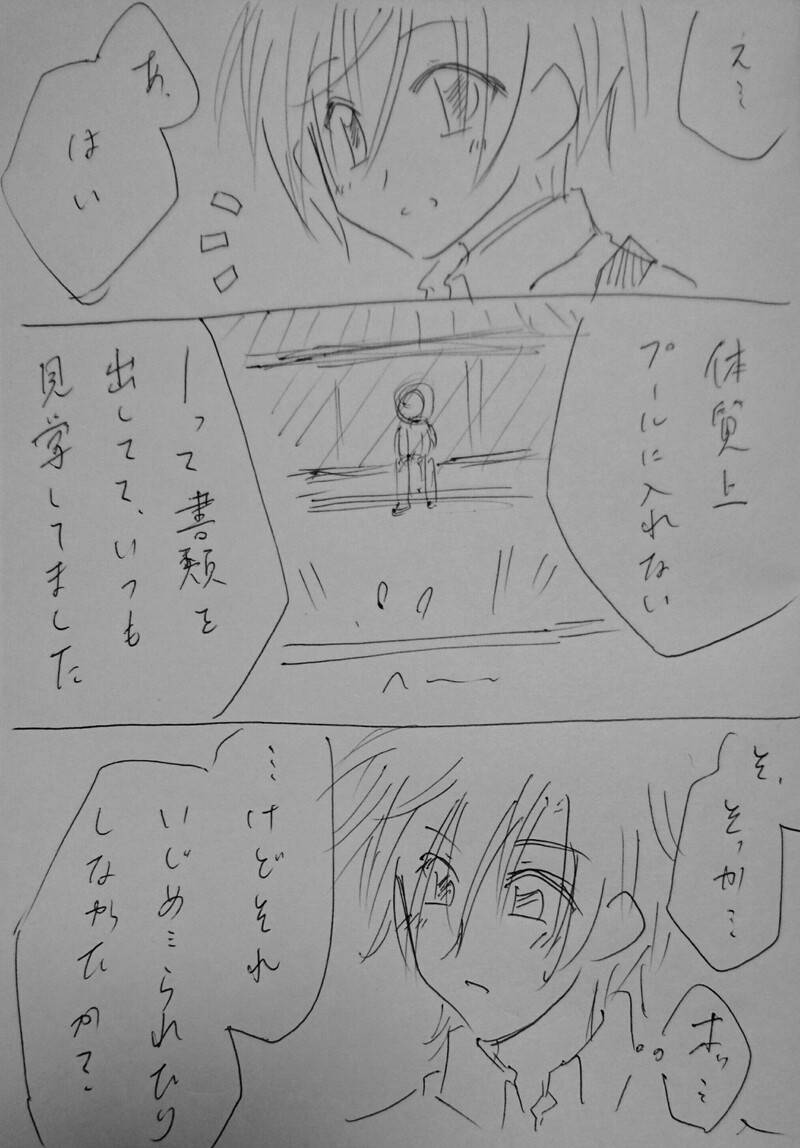 え…
あ、
はい
体質上
プールに入れない
って書類を
出してて、いつも
見学してました
へーー
そ、
そっか…
ホッ…
…けどそれ
いじめ…られたり
しなかったか?